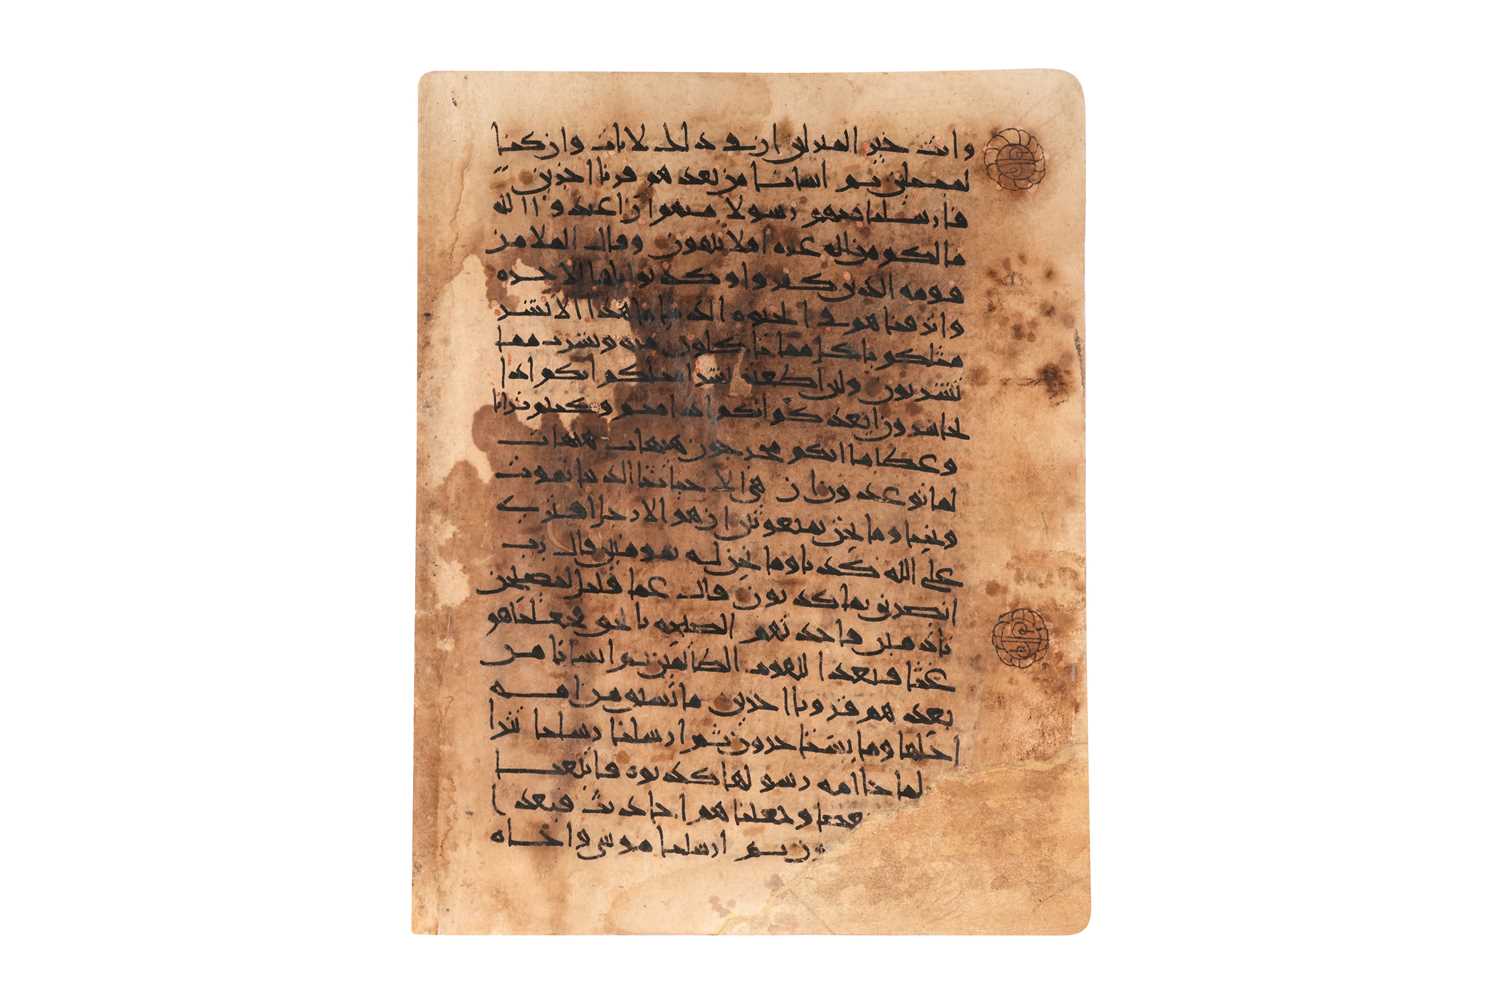 وانت خير المنزلين ان في ذلك لايات وان كنا
لمبتلين ثم انشانا من بعدهم قرنا اخرين
فارسلنا فيهم رسولا منهم ان اعبدوا الله
ما لكم من اله غيره افلا تتقون وقال الملا من
قومه الذين كفروا وكذبوا بلقا الاخره
واترفناهم في الحيوه الدنيا ما هذا الا بشر
مثلكم ياكل مما تاكلون منه ويشرب مما
تشربون ولين اطعتم بشرا مثلكم انكم اذا
لخاسرون ايعدكم انكم اذا متم وكنتم ترابا
وعظاما انكم مخرجون هيهات هيهات
لما توعدون ان هي الا حياتنا الدنيا نموت
ونحيا وما نحن بمبعوثين ان هو الا رجل افترى
على الله كذبا وما نحن له بمومنين قال رب
انصرني بما كذبون قال عما قليل ليصبحن
نادمين فاخذتهم الصيحه بالحق فجعلناهم
غثا فبعدا للقوم الظالمين ثم انشانا من
بعدهم قرونا اخرين ما تسبق من امه
اجلها وما يستاخرون ثم ارسلنا رسلنا تترا
كلما جا امه رسولها كذبوه فاتبعنا
بعضا وجعلناهم احاديث فبعدا
ثم ارسلنا موسى واخاه